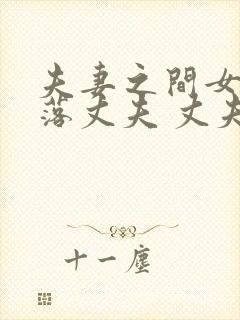 夫妻之间女
落丈夫 丈夫
十一尘